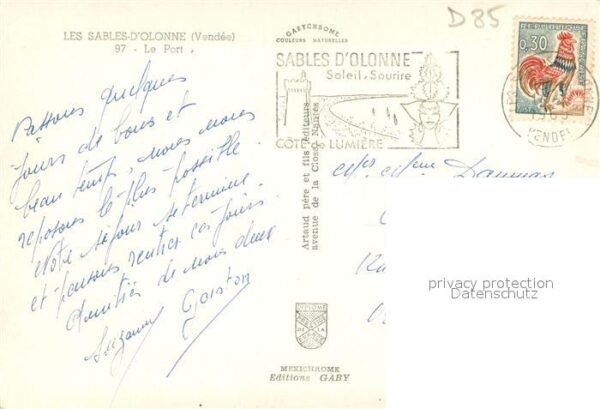 LES SABLES-D'OLONNE (Vendée)
97 - Le Port
D85
GABYCHROME
COULEURS NATURELLES
SABLES D'OLONNE
Soleil.Sourire
CÔTE de LUMIÈRE
REPUBLIQUE
0,30
VENDEE
Passons quelques
jours de bons et
beau temps, nous nous
reposons le plus possible.
Notre séjour se termine
et pensons rentrer ces jours
Amitiés de nous deux
Suzanne Gaston
Artaud père et fils éditeurs
avenue de la Close Nantes
Mr Mme Daumas
privacy protection
Datenschutz
MEXICHROME
Editions GABY